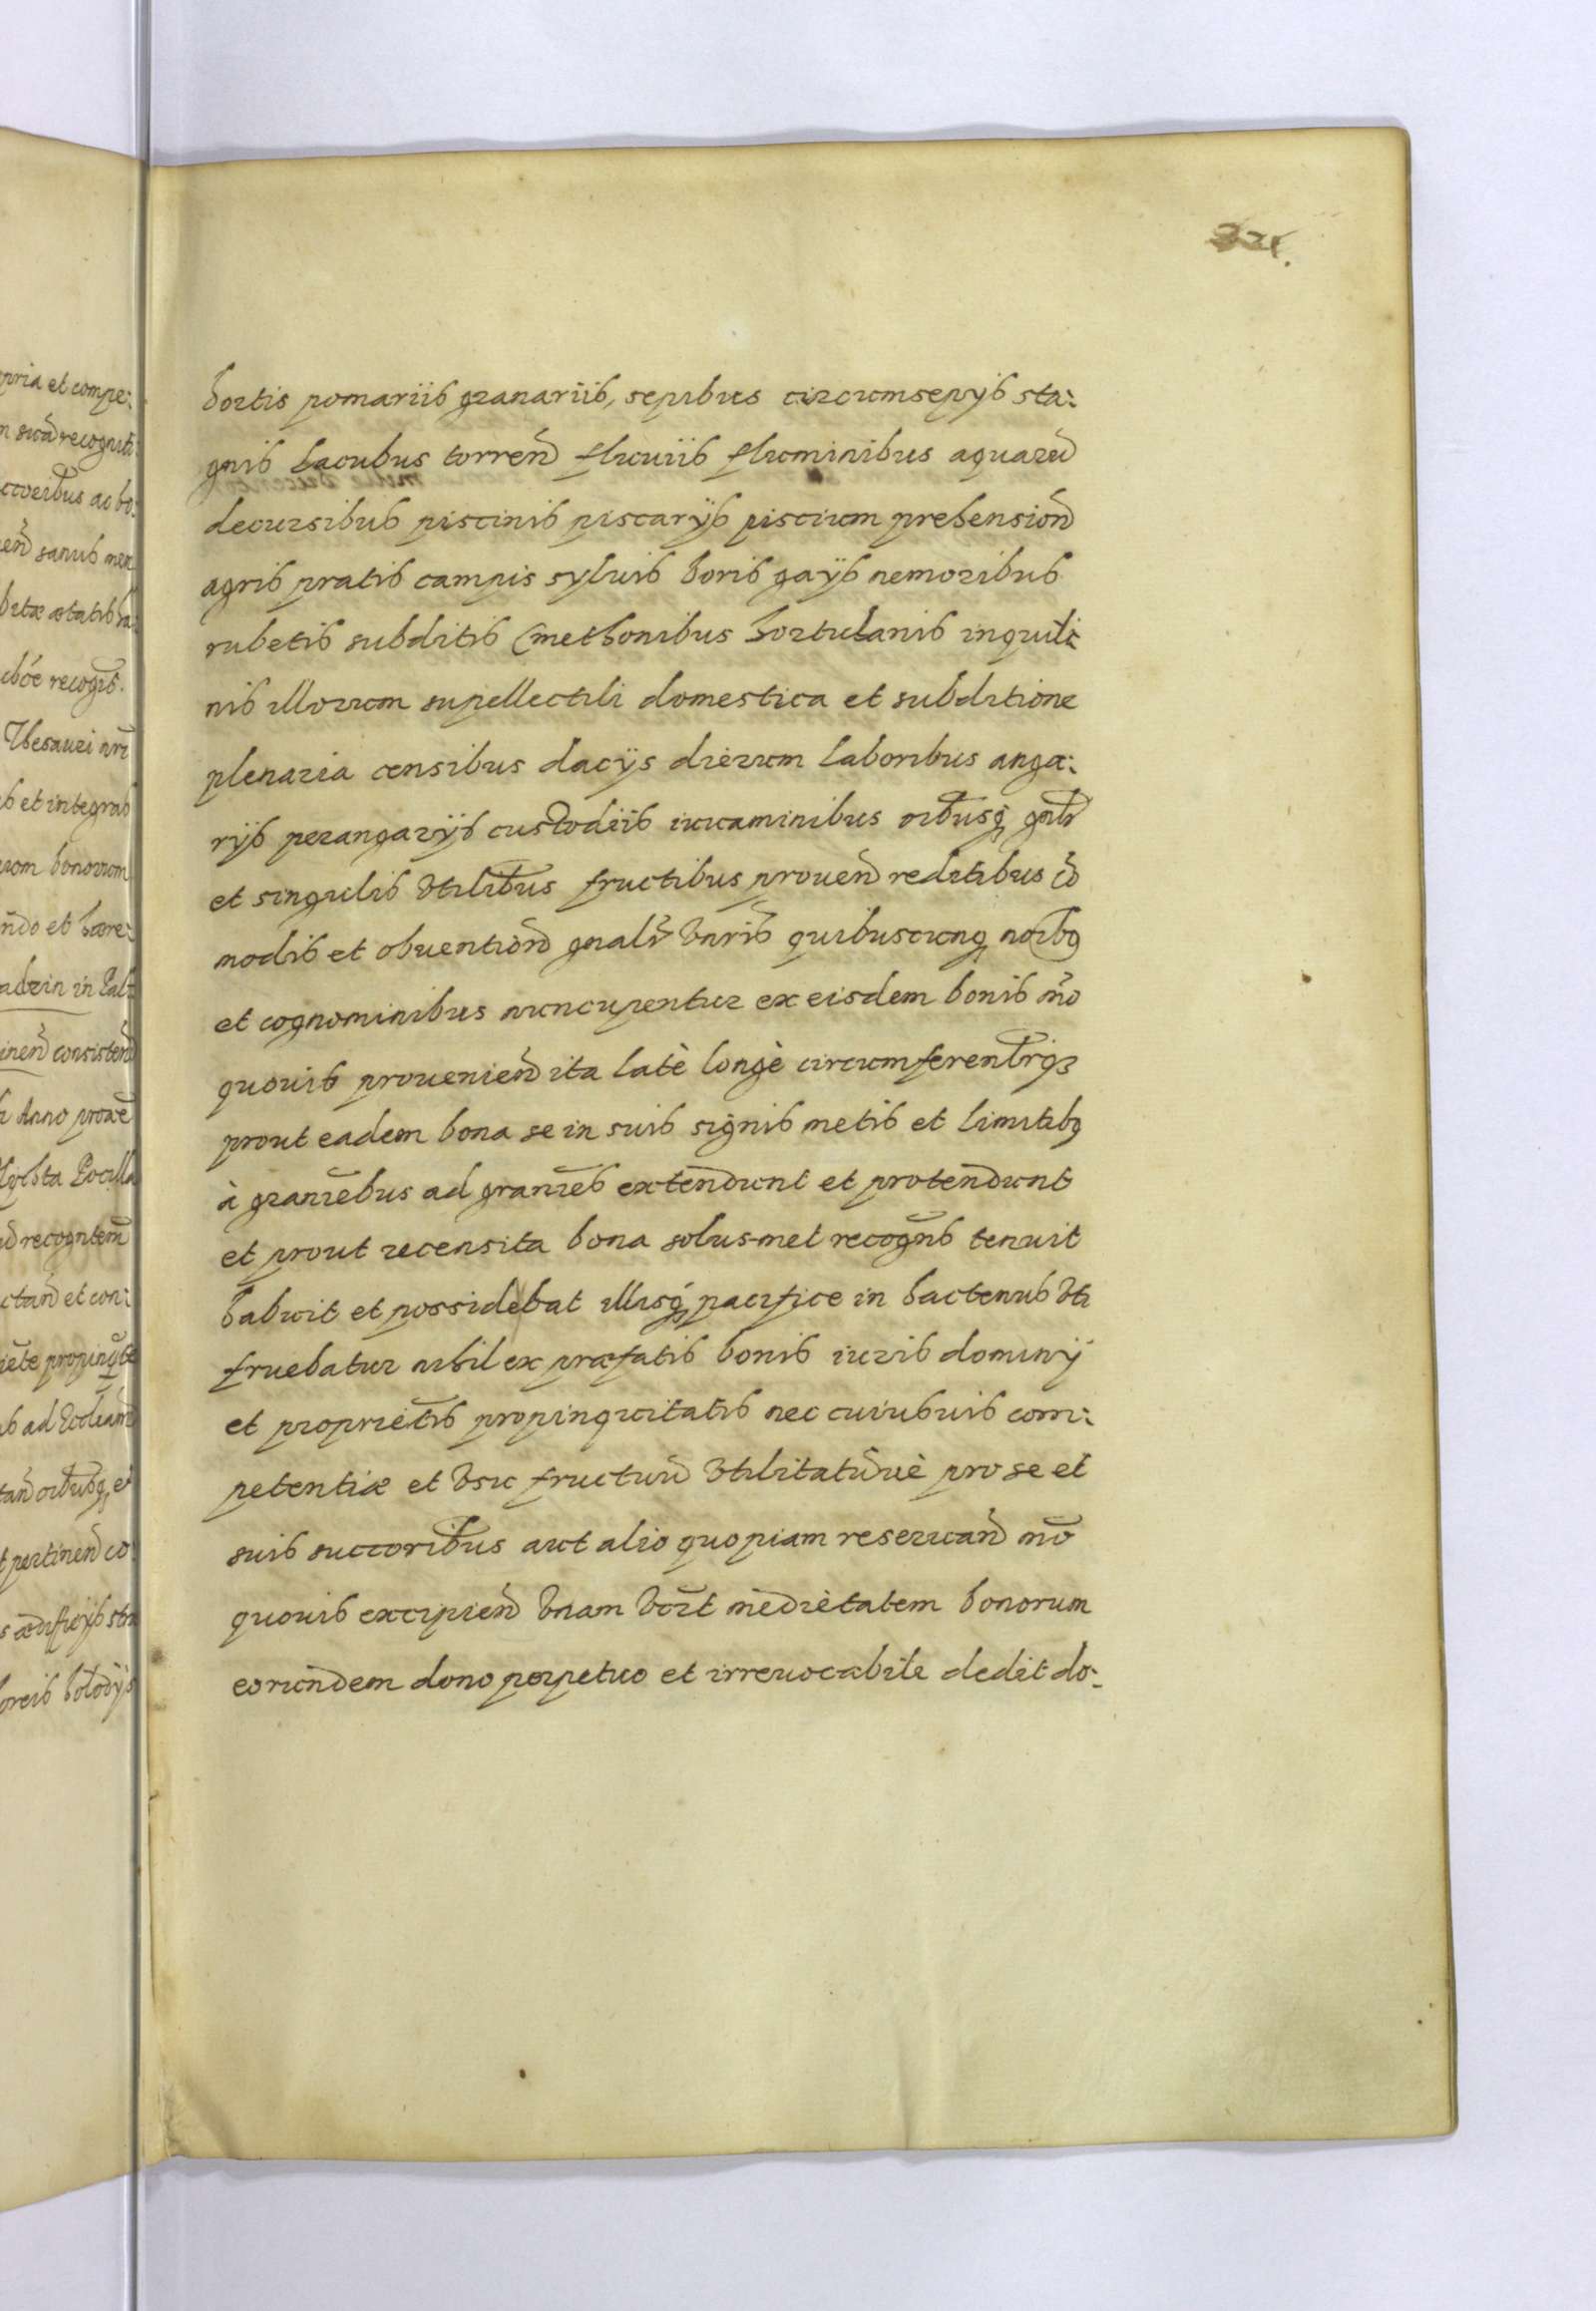 321.
hortis pomariis granariis, sepibus circumsepijs sta:
gnis lacubus torren̄ fluuiis fluminibus aquarū
decursibus piscinis piscarijs piscium prehensioñ
agris pratis campis syluis boris gayis nemoribus
rubetis subditis Cmethonibus hortulanis inquili
nis illorum supellectili domestica et subditione
plenaria censibus dacijs dierum laboribus anga:
rijs perangarijs custodiis iuuaminibus oībusq̨ gnlr̄
et singulis vtilitbus fructibus prouen̄ reditibus cō
modis et obuentioñ gnalr̄ vnr̄is quibuscunq̨ noībq
et cognominibus nuncupentur ex eisdem bonis mō
quouis prouenien̄ ita latè longè circumferentrq3
prout eadem bona se in suis signis metis et limitibq
à graniēbus ad graniēs extendunt et protendunt
et prout recensita bona solus-met recogn̄s tenuit
habuit et possidebat illisq̨ pacifice in hactenus vti
fruebatur nihil ex præfatis bonis iuris dominij
et proprietīs propinquitatis nec cuiusuis com:
petentiæ et vsu fructuū vtilitatūuè pro se et
suis succoribus aut alio quopiam reseruan̄ mō
quouis excipien̄ vnam vērt medietatem bonorum
eorundem dono perpetuo et irreuocabili dedit do:
pria et compe:
sanus men
Thesauri nrī
s et integras
bonorum
consisten̄
Anno proxē
et con: